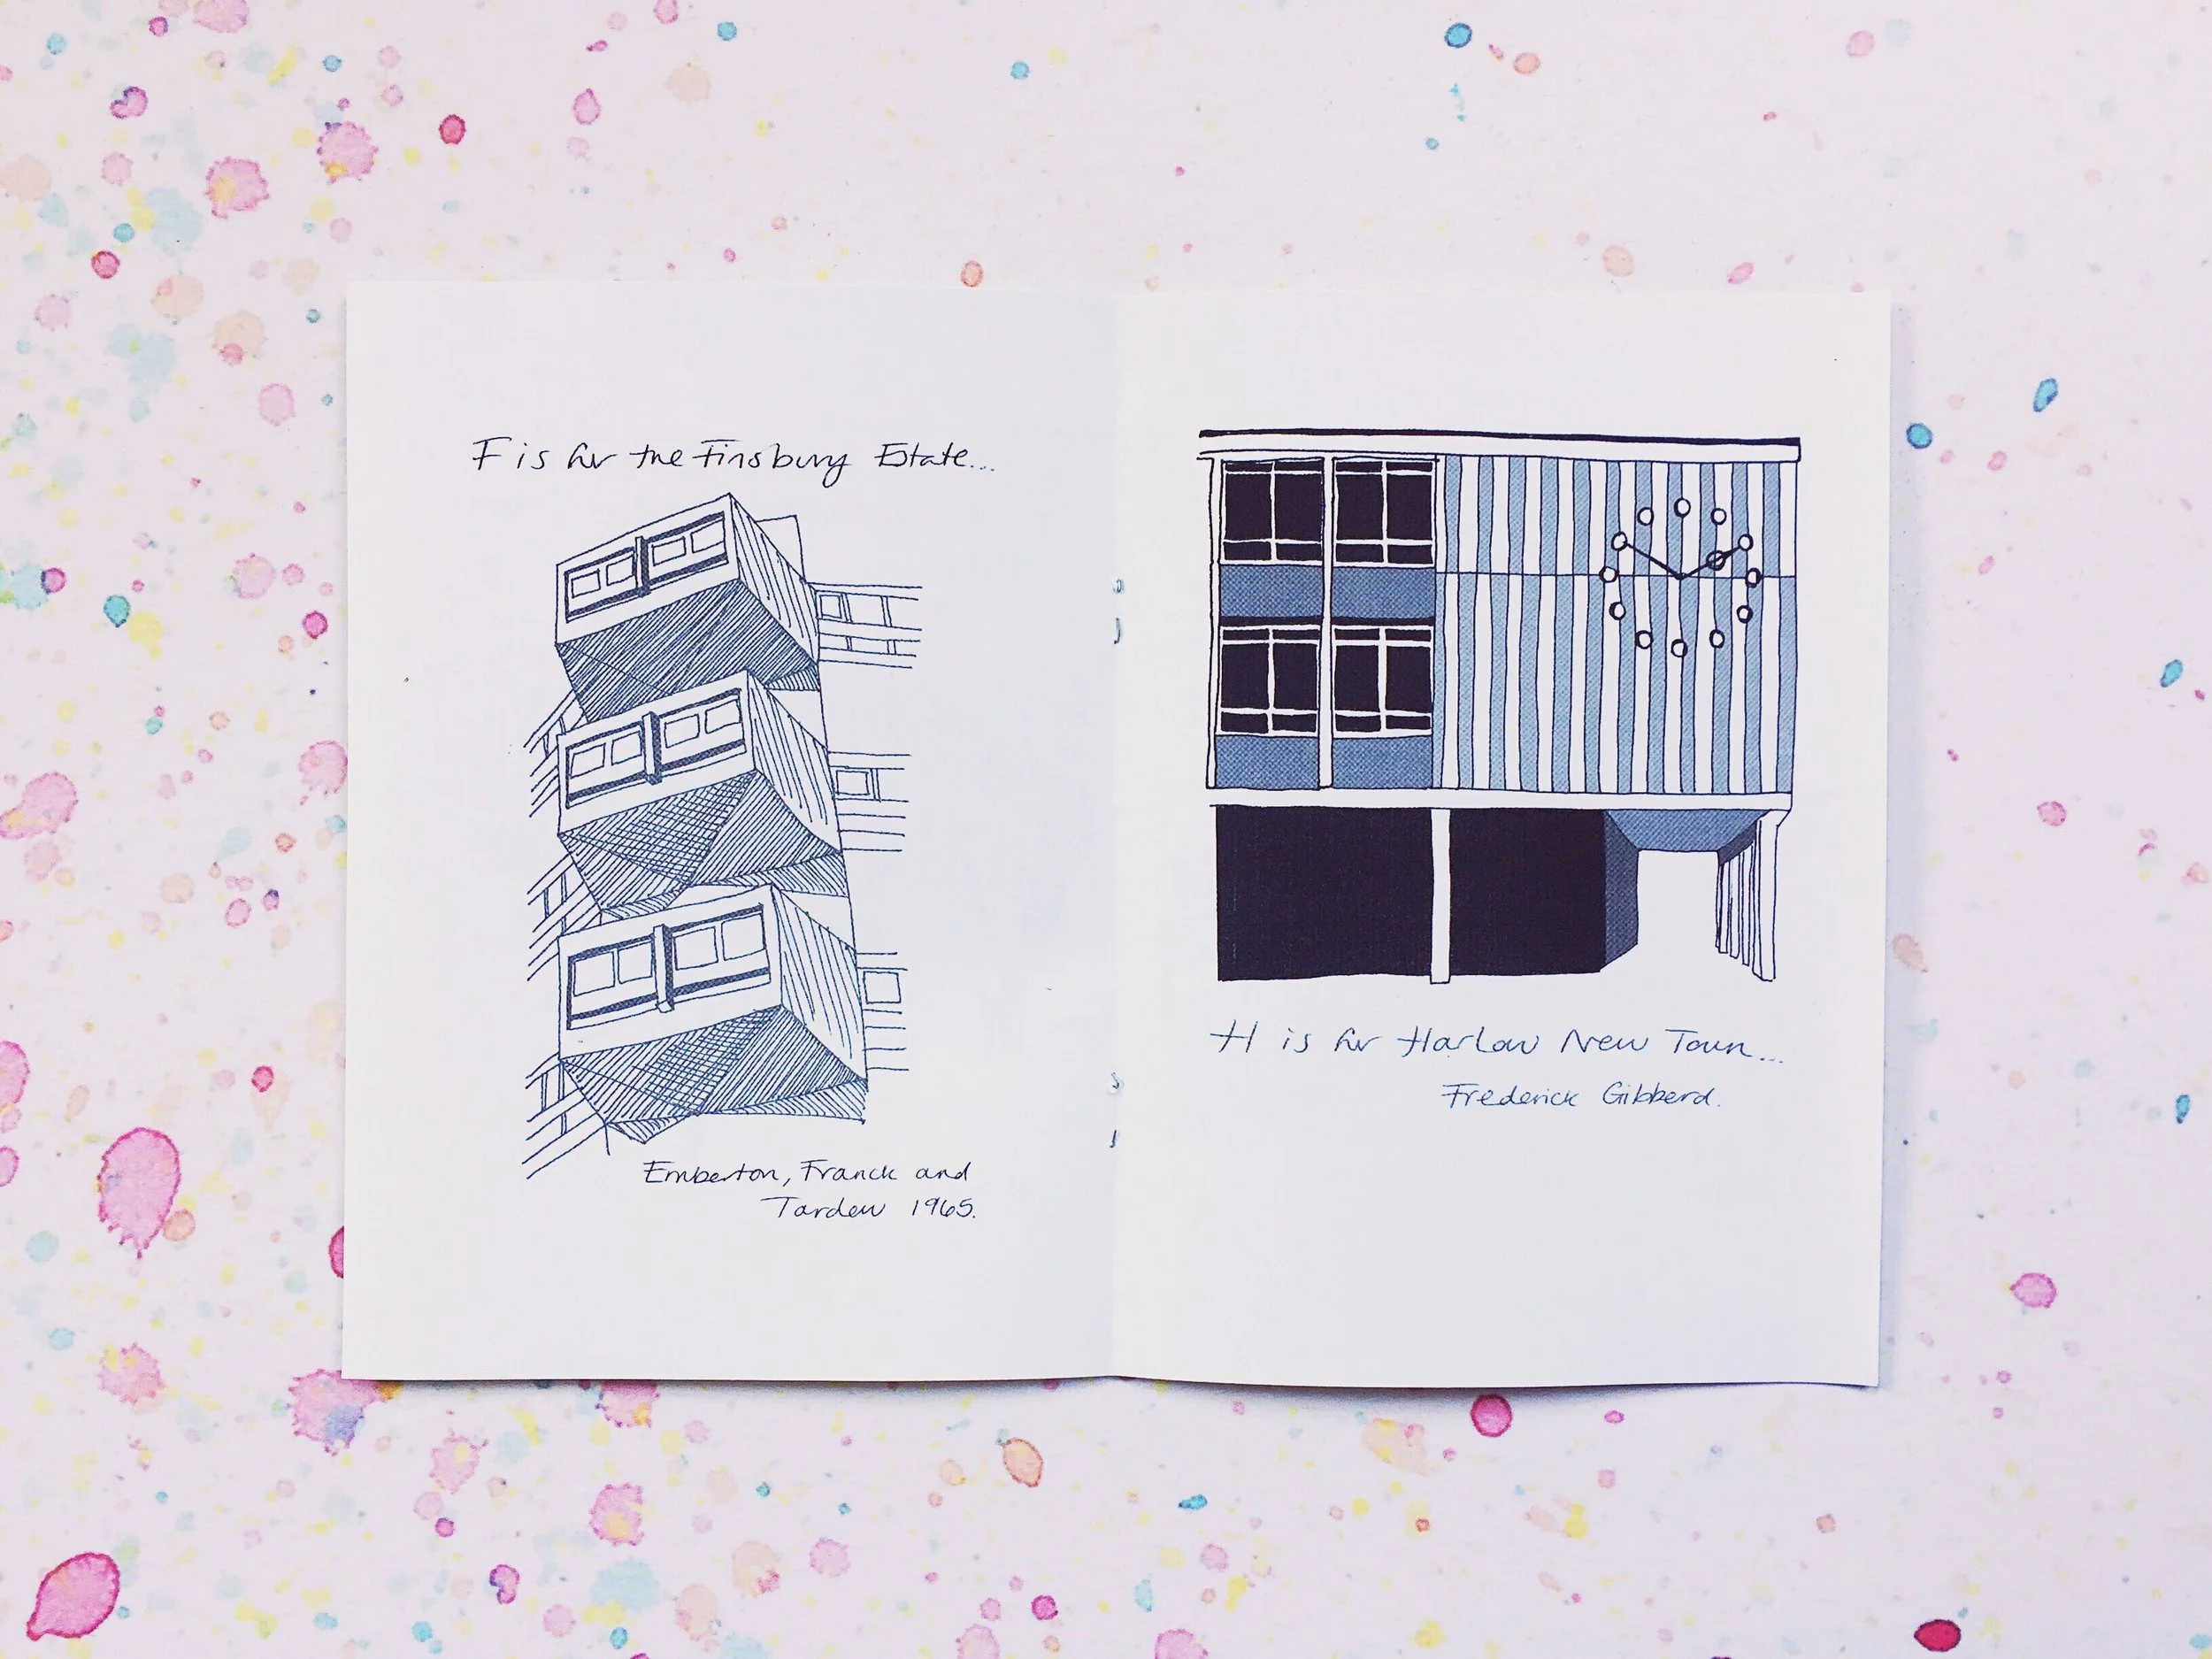 F is for the Finsbury Estate...
Emberton, Franck and
Tardew 1965.
H is for Harlow New Town...
Frederick Gibberd.